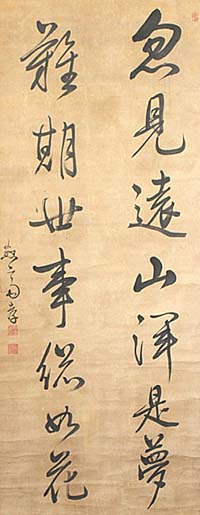 忽見遠山渾是夢
難期世事總如花